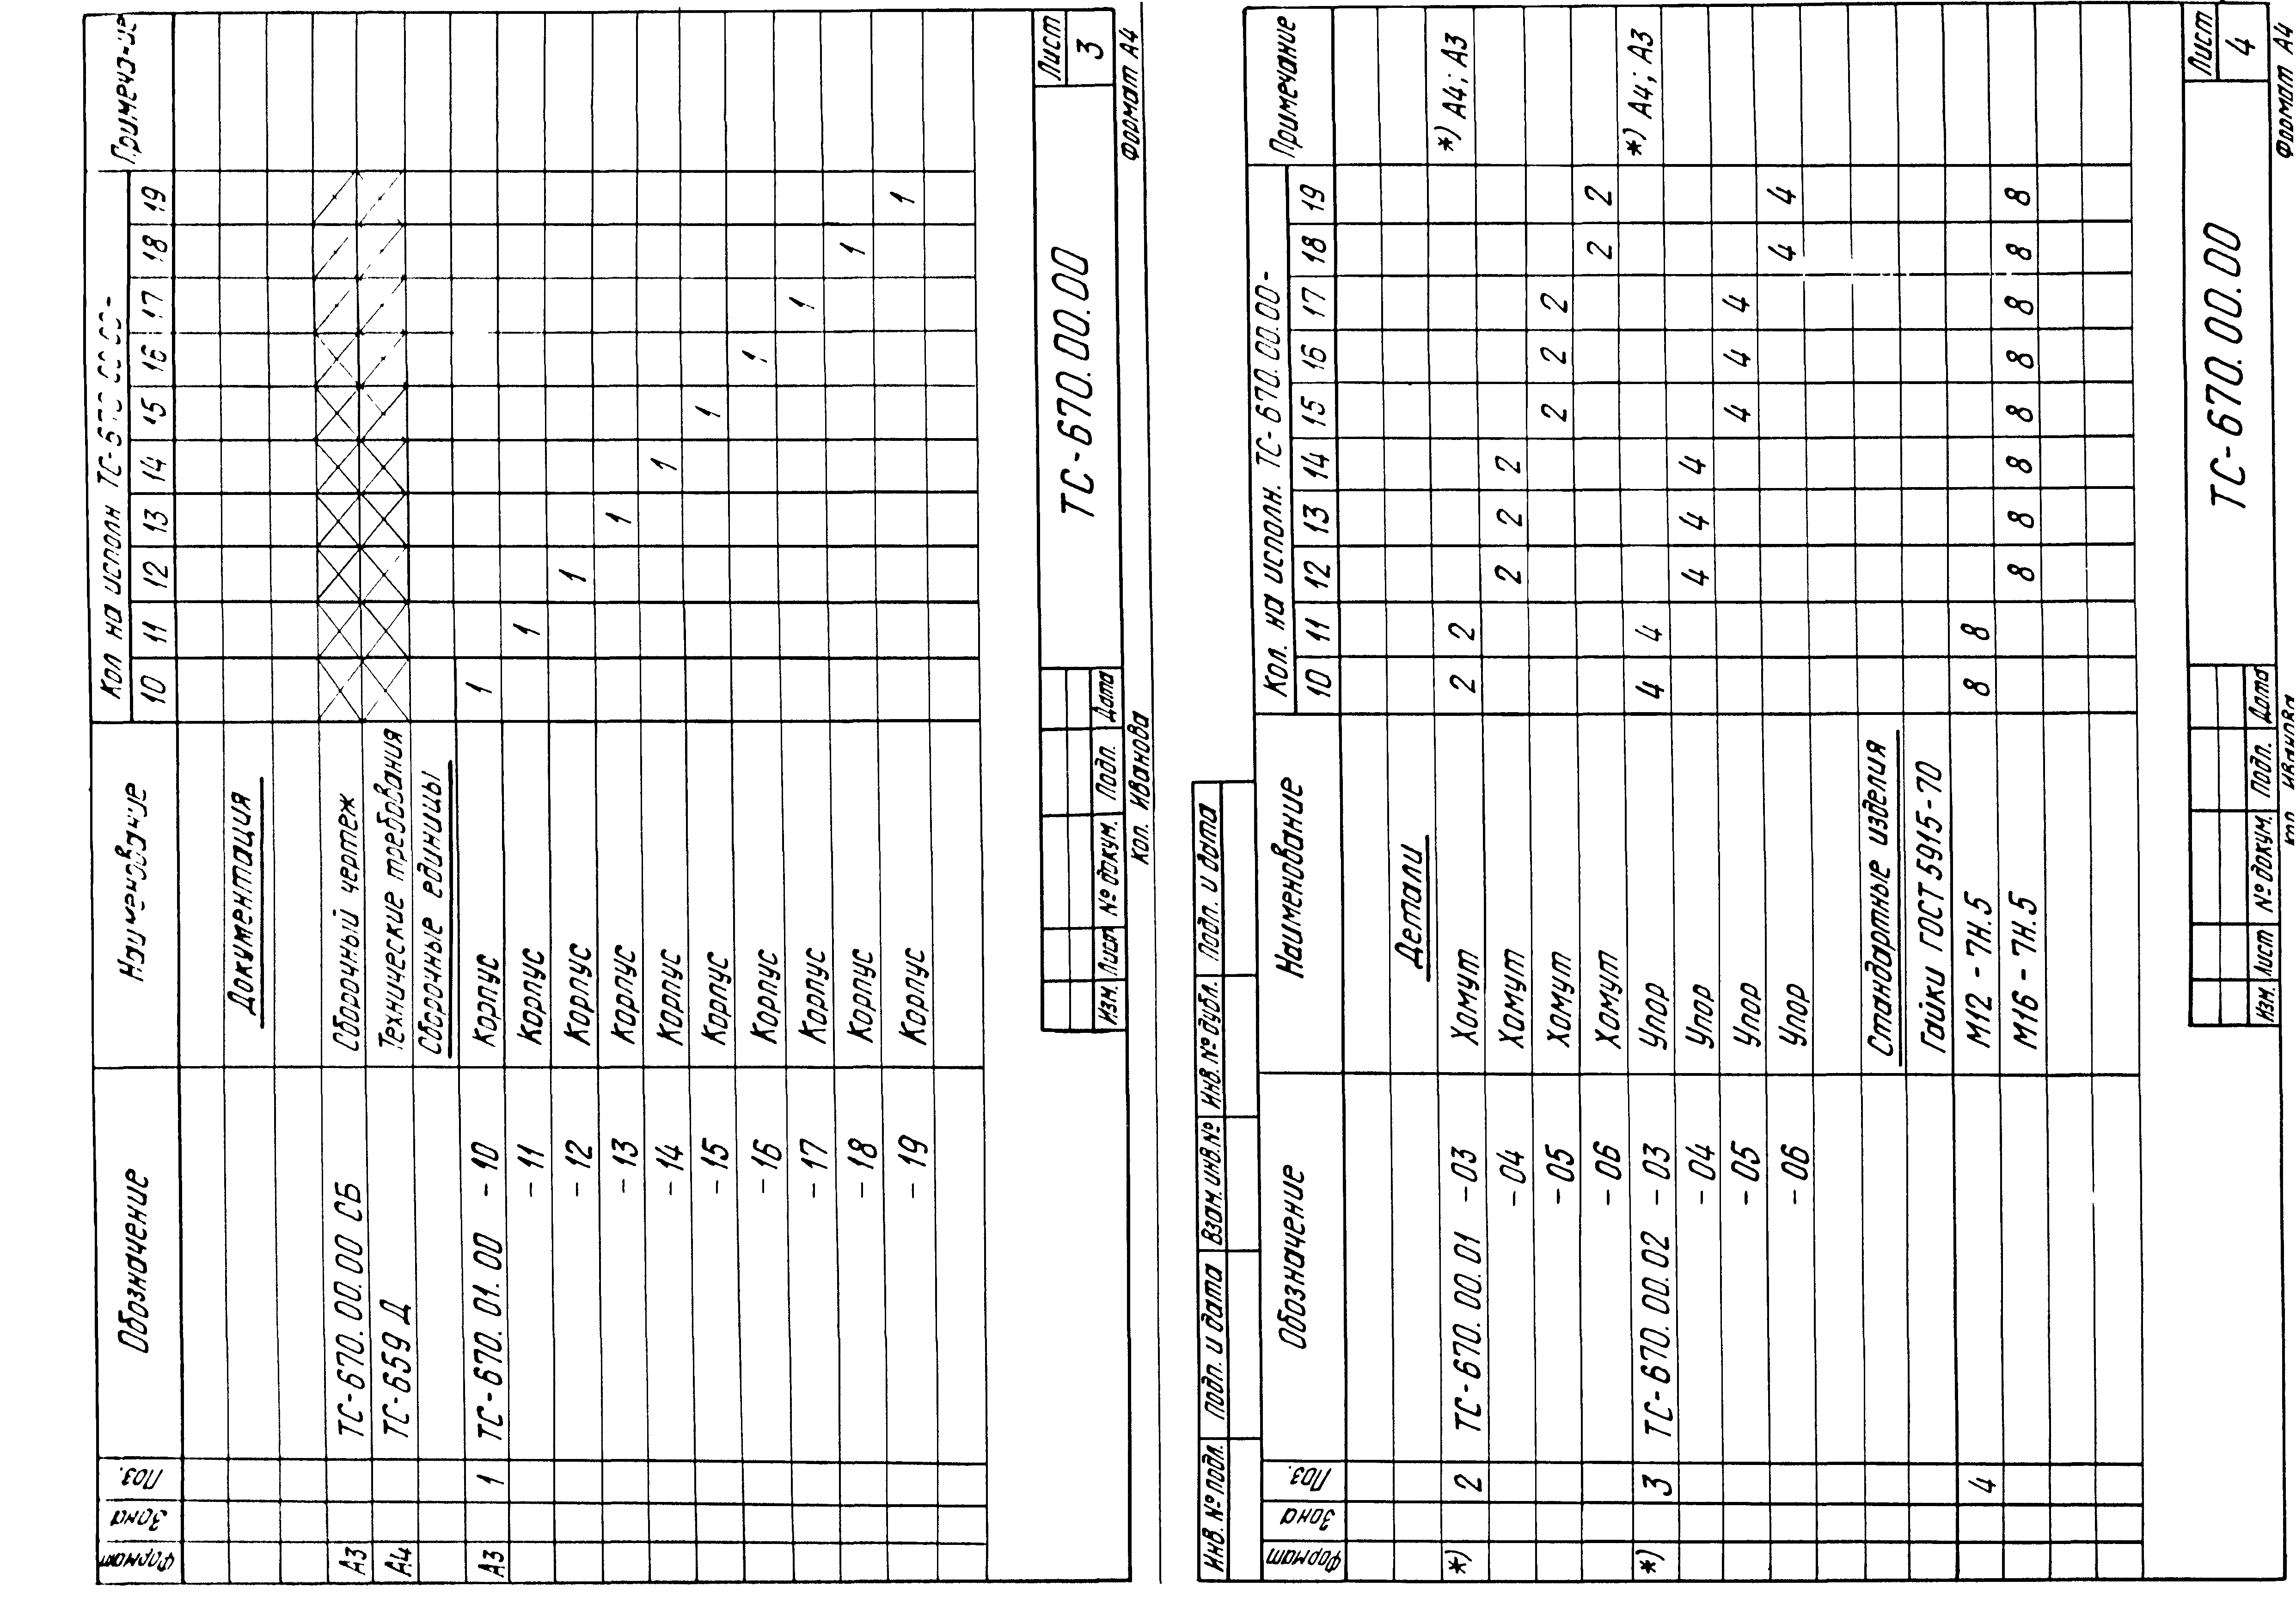 Формат Зона Поз. Обозначение Наименование Кол на исполн ТС-670 00 00- Примечание
10 11 12 13 14 15 16 17 18 19
Документация
А3 ТС-670.00.00 СБ Сборочный чертеж
А4 ТС-659 Д Технические требования
Сборочные единицы
А3 1 ТС-670.01.00 -10 Корпус 1
-11 Корпус 1
-12 Корпус 1
-13 Корпус 1
-14 Корпус 1
-15 Корпус 1
-16 Корпус 1
-17 Корпус 1
-18 Корпус 1
-19 Корпус 1
Изм. Лист № докум. Подп. Дата
ТС-670.00.00
Лист
3
Кол. Иванова Формат А4
Инв. № подл. Подп. и дата Взам. инв. № Инв. № дубл. Подп. и дата
Формат Зона Поз. Обозначение Наименование Кол. на исполн. ТС-670.00.00- Примечание
10 11 12 13 14 15 16 17 18 19
Детали
*) 2 ТС-670.00.01 -03 Хомут 2 2 *) А4; А3
-04 Хомут 2 2 2
-05 Хомут 2 2 2
-06 Хомут 2 2
*) 3 ТС-670.00.02 -03 Упор 4 4 *) А4; А3
-04 Упор 4 4 4
-05 Упор 4 4 4
-06 Упор 4 4
Стандартные изделия
Гайки ГОСТ 5915-70
4 М12 - 7Н.5 8 8
М16 - 7Н.5 8 8 8 8 8 8 8 8
Изм. Лист № докум. Подп. Дата
ТС-670.00.00
Лист
4
Кол. Иванова Формат А4